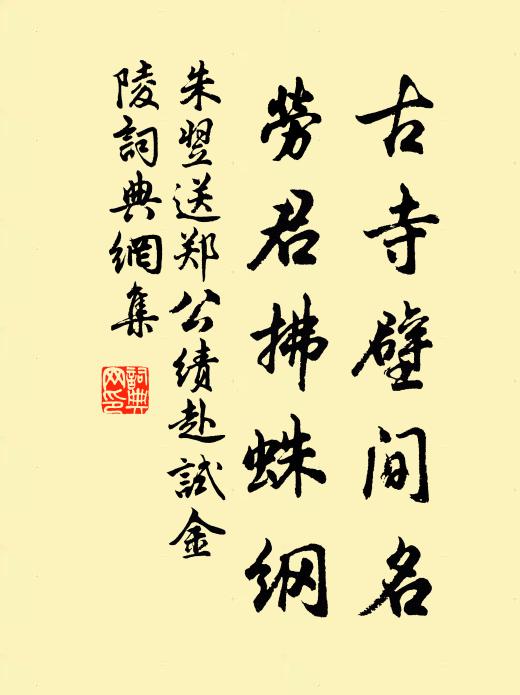 古寺壁间名
勞君拂蛛纲
朱翌送郑公绩赴試金
陵詞典網集
詞典
网印